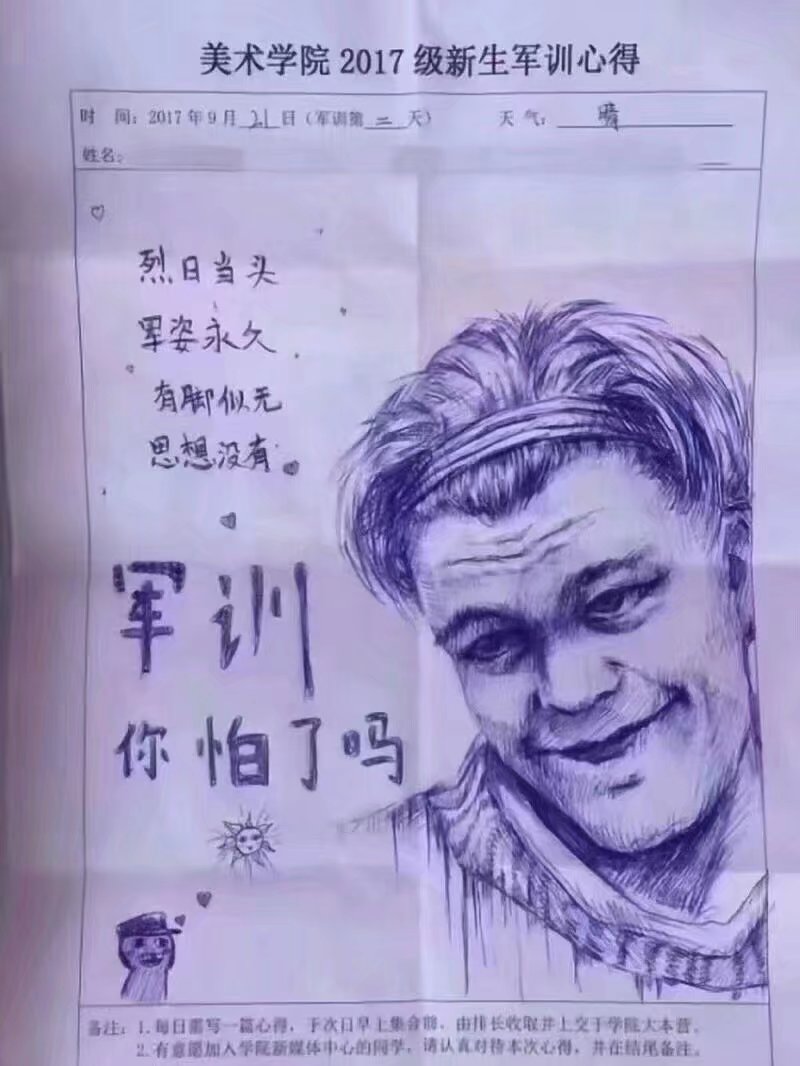 美术学院 2017 级新生军训心得
时 间：2017 年 9 月 21 日（军训第 二 天） 天 气： 晴
姓名：
烈日当头
军姿永久
有脚似无
思想没有
军训
你怕了吗
备注：1.每日需写一篇心得，于次日早上集合前，由排长收取并上交于学院大本营。
2.有意愿加入学院新媒体中心的同学，请认真对待本次心得，并在结尾备注。